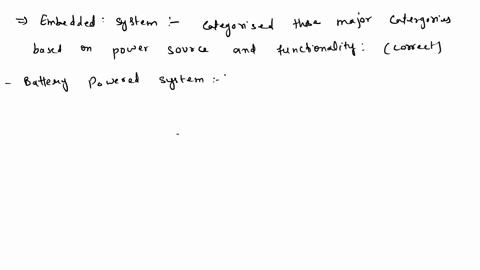 ⇒ Embedded: system :- categorised these major catergories
based on power source and functionality: (correct)
- Battery Powered system :-